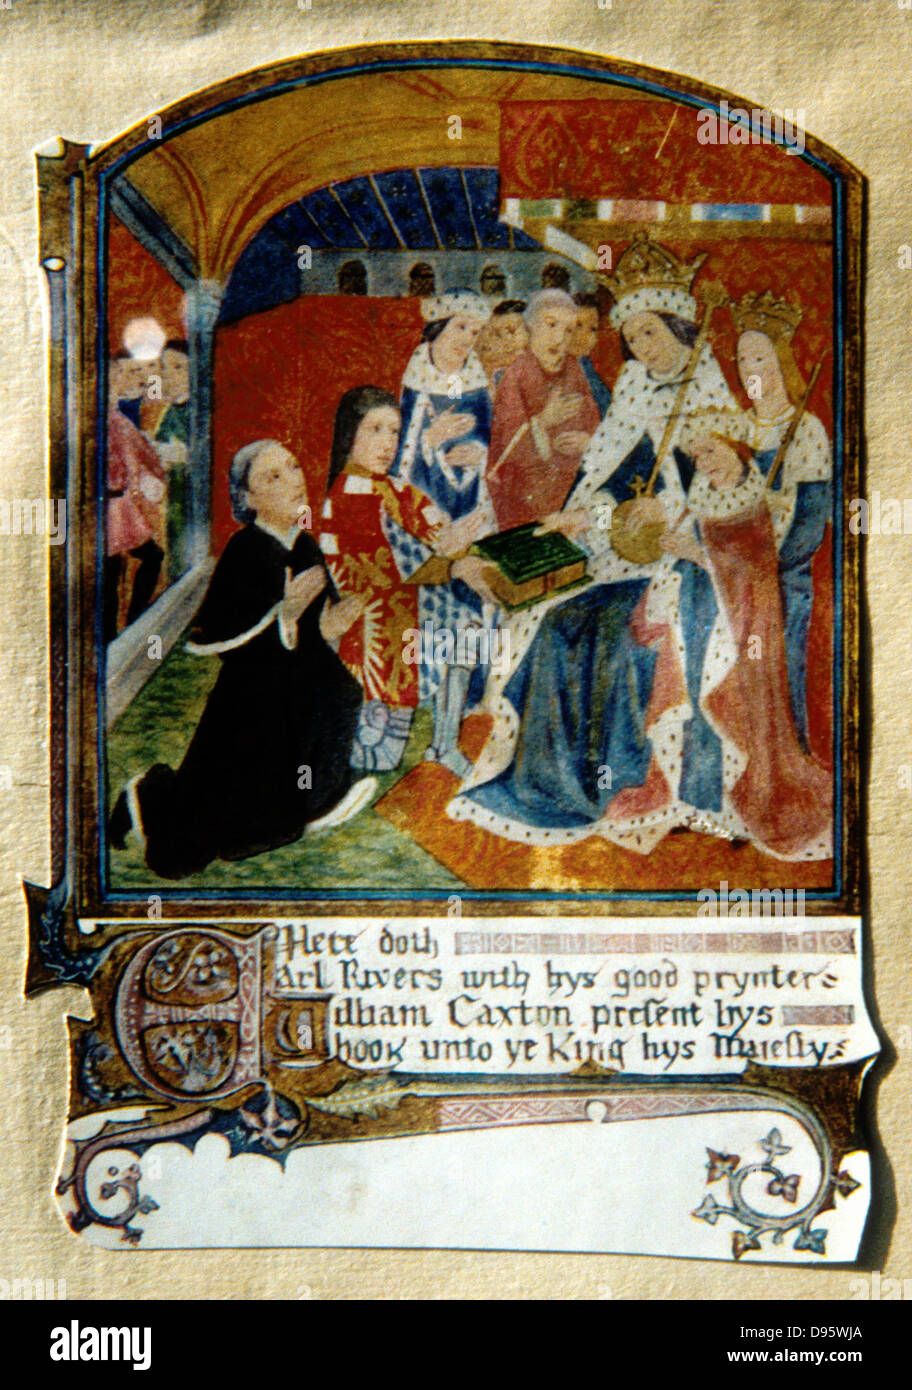 Here doth
Earl Rivers with hys good prynter
William Caxton present hys
book unto ye King hys Maiesty
alamy
Image ID: D95WJA
www.alamy.com